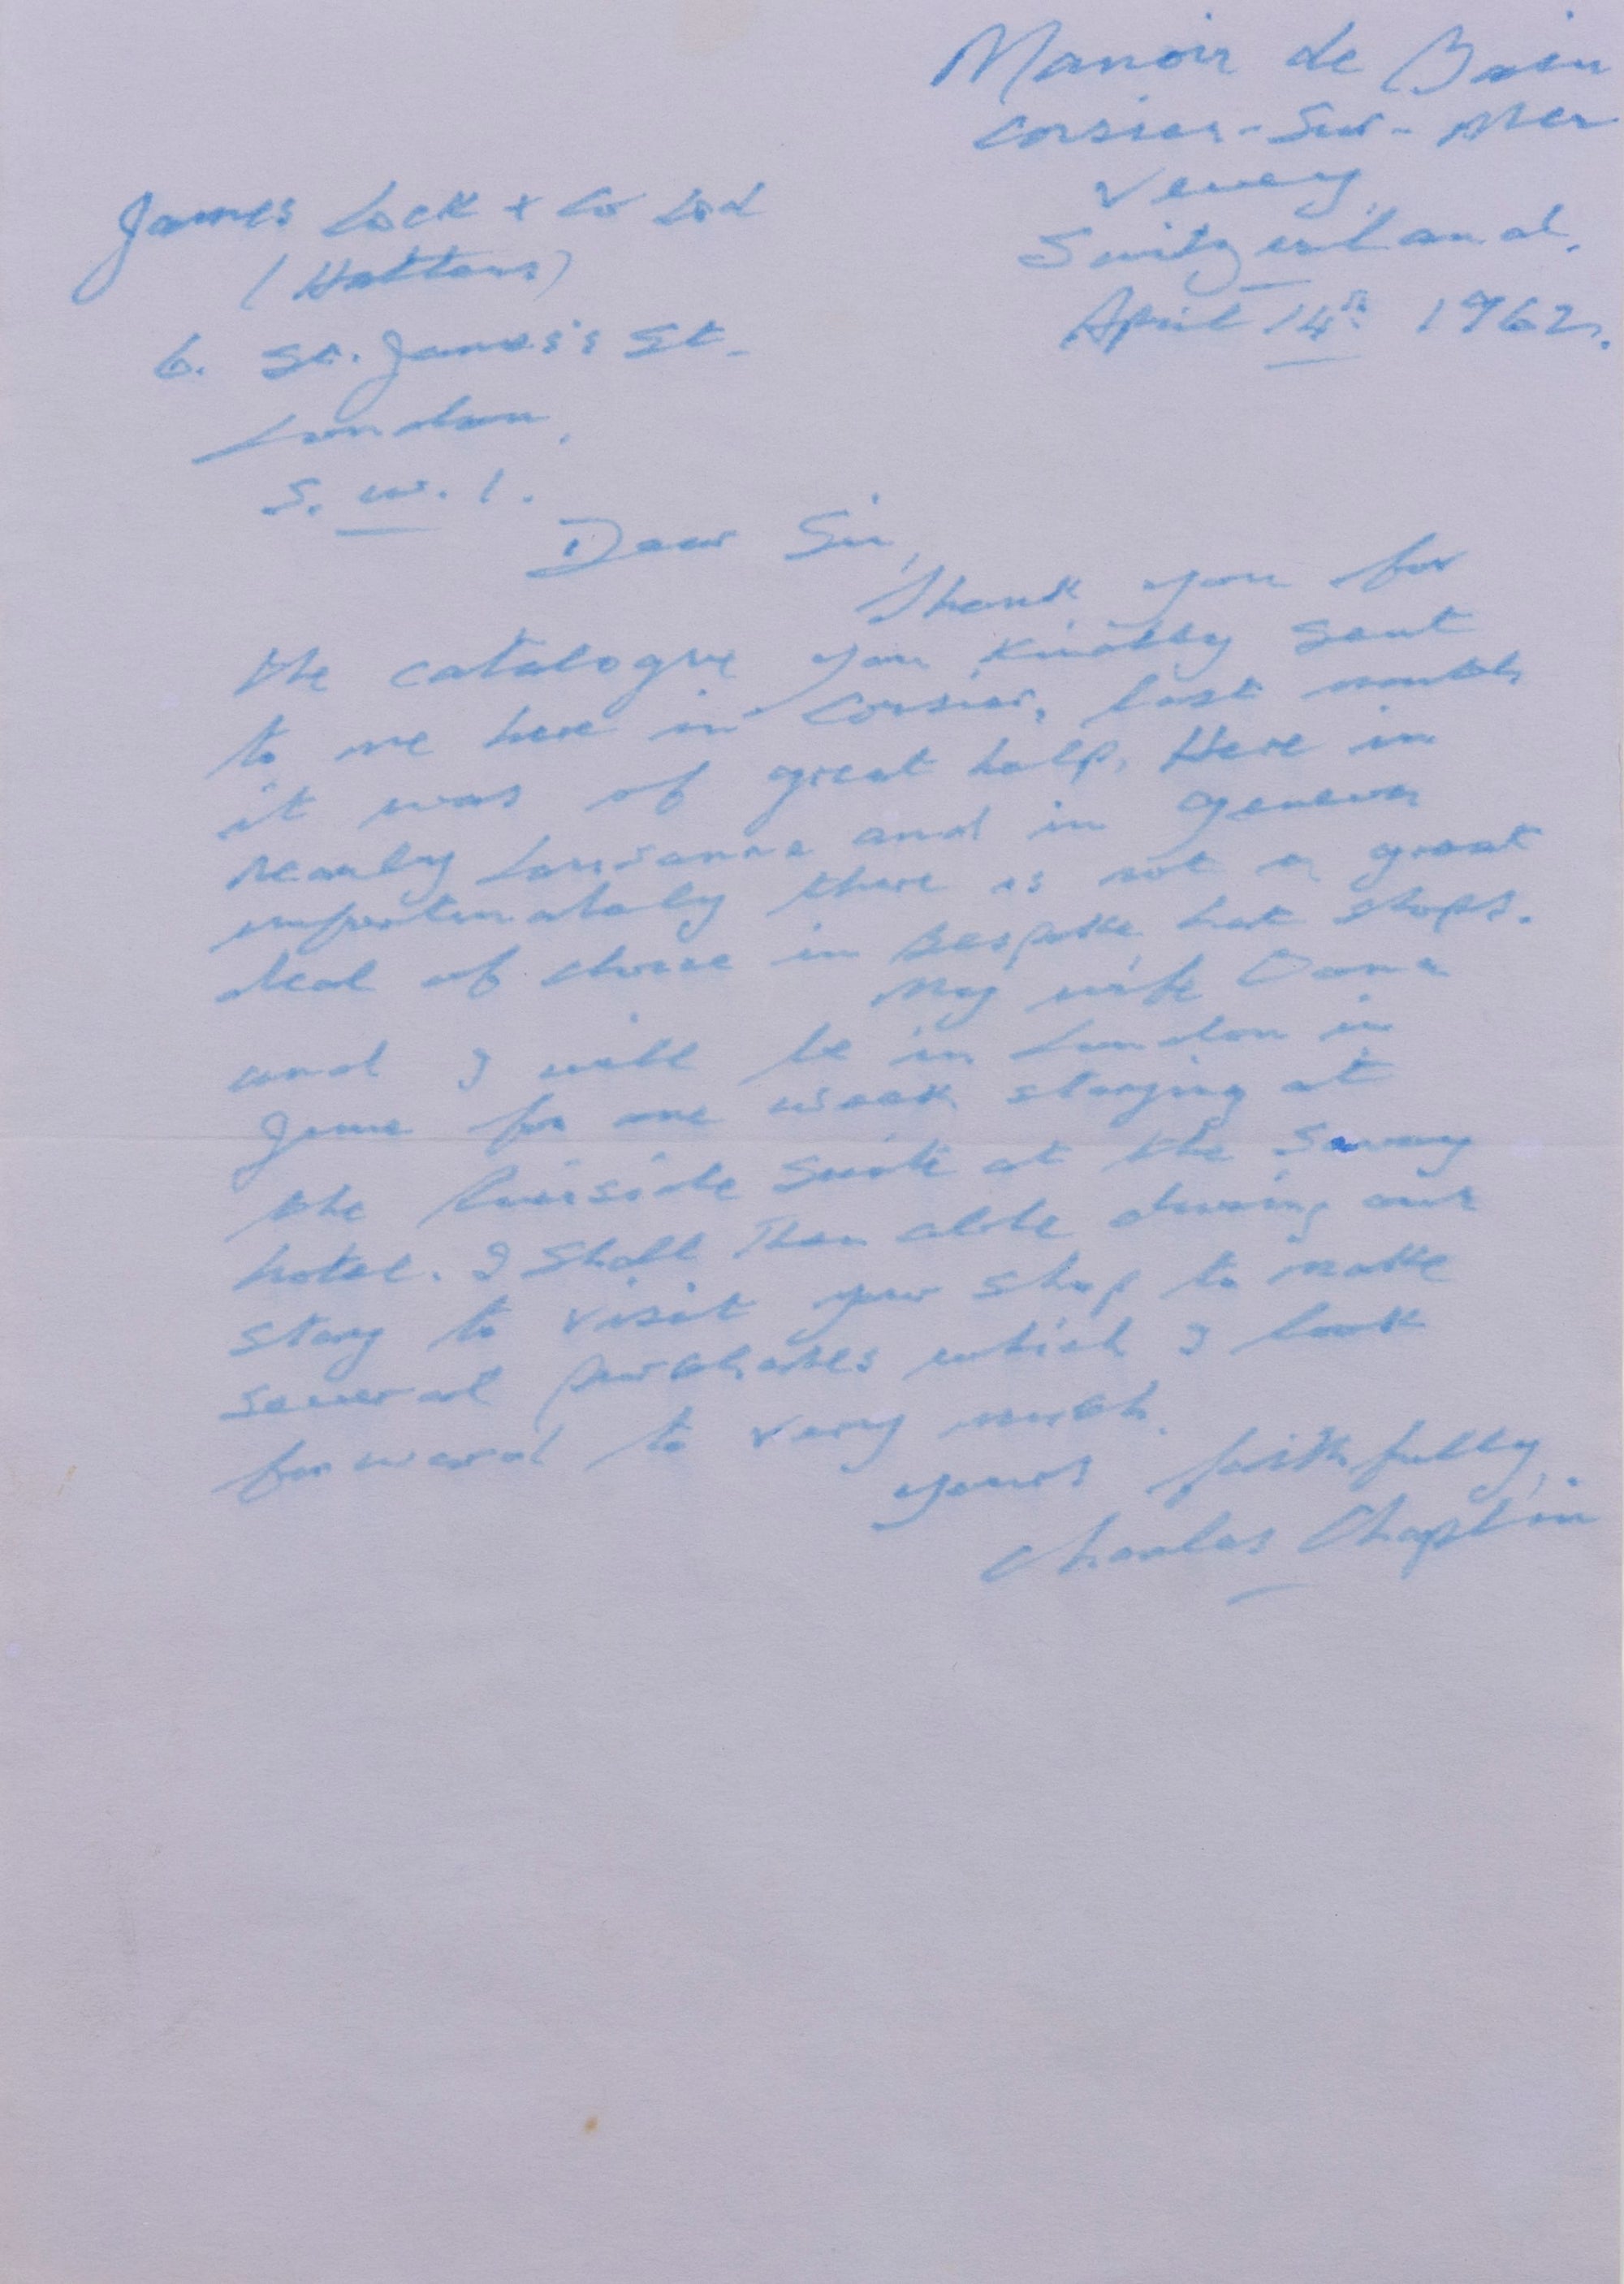 Manoir de Bain
Corsier-Sur-Mer
Vevey,
Switzerland.
April 14th 1962.
James Lock + Co Ltd
(Hatters)
6. St. James's St.
London,
S.W.1.
Dear Sir,
Thank you for
the catalogue you kindly sent
to me here in Corsier, last month,
it was of great help. Here in
nearby Lausanne and in Geneva
unfortunately there is not a great
deal of choice in Bespoke hat shops.
My wife Oona
and I will be in London in
June for one week staying at
the Riverside Suite at the Savoy
hotel. I shall Then able during our
stay to visit your shop to make
several purchases which I look
forward to very much.
yours faithfully,
Charles Chaplin